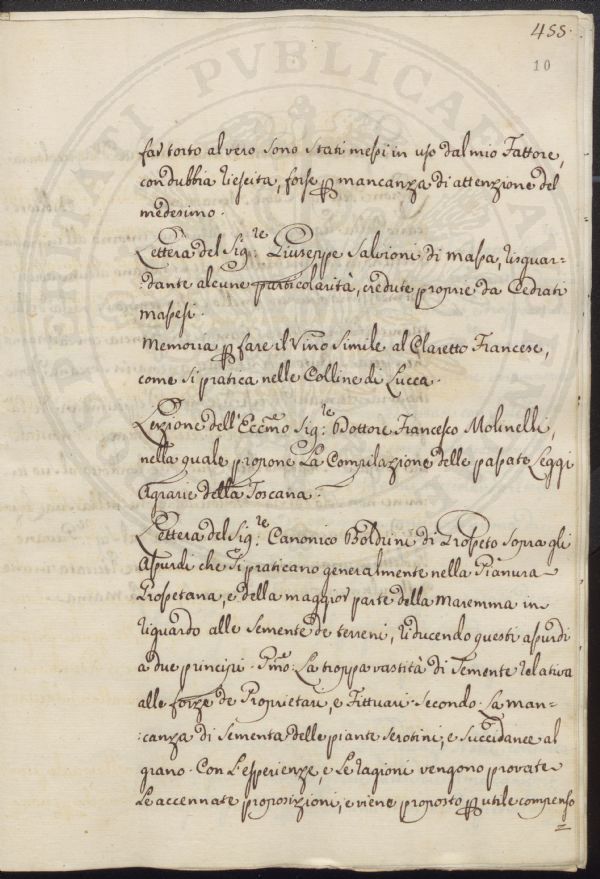 455.
10
far torto al vero sono stati messi in uso dal mio Fattore,
con dubbia riescita, forse p mancanza di attenzione del
medesimo.
Lettera del Sig:re Giuseppe Salvioni di Massa, risguar=
=dante alcune particolarità, credute proprie da Cedrati
Massesi.
Memoria p fare il Vino Simile al Claretto Francese,
come si pratica nelle Colline di Lucca.
Lezione dell'Eccmo Sig:re Dottore Francesco Molinelli,
nella quale propone La Compilazione delle passate Leggi
Agrarie della Toscana.
Lettera del Sig:re Canonico Boldrini di Grosseto sopra gli
Assurdi che si praticano generalmente nella Pianura
Grossetana, e della maggior parte della Maremma in
riguardo alle semente de terreni, riducendo questi assurdi
a due principj. Pmo: La troppa vastità di Semente relativa
alle forze de Proprietari, e Fittuari. Secondo. La man=
=canza di Sementa delle piante serotini, e Succidanee al
grano. Con L'esperienze, e Le ragioni vengono provate
Le accennate proposizioni, e viene proposto p utile compenso
=
BONONIENSIS PVBLICAE